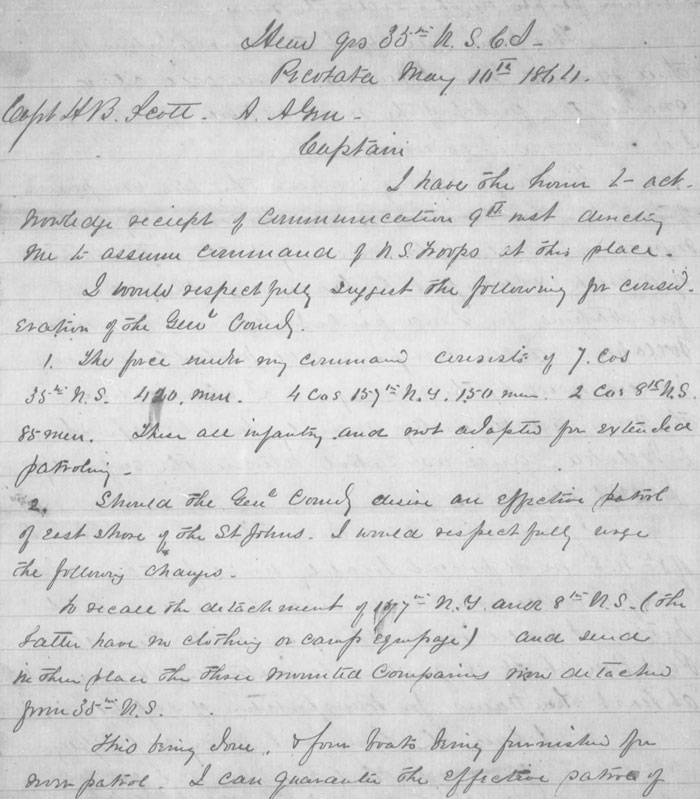 Head qrs 35th U.S.C.T-
Picolata May 10th 1864.
Capt H B. Scott. A. A Gen -
Captain
I have the honor to ack-
nowledge reciept of Communication 9th inst directing
me to assume command of U.S. Troops at this place.
I would respectfully suggest the following for consid-
eration of the Genl Comdg.
1. The force under my command consists of 7. Cos
35th U.S. 420. men. 4 Cos 157th N.Y. 150 men. 2 Cos 8th U.S.
85 men. These all infantry and not adapted for extended
patroling -
2. Should the Genl Comdg desire an effective patrol
of east shore of the St Johns. I would respectfully urge
the following changes.
To recall the detachment of 157th N.Y. and 8th U.S. (the
latter have no clothing or camp equipage) and send
in their place the three mounted Companies now detached
from 35th U.S.
This being done, & four boats being furnished for
patrol. I can guarantee the effective patrol of